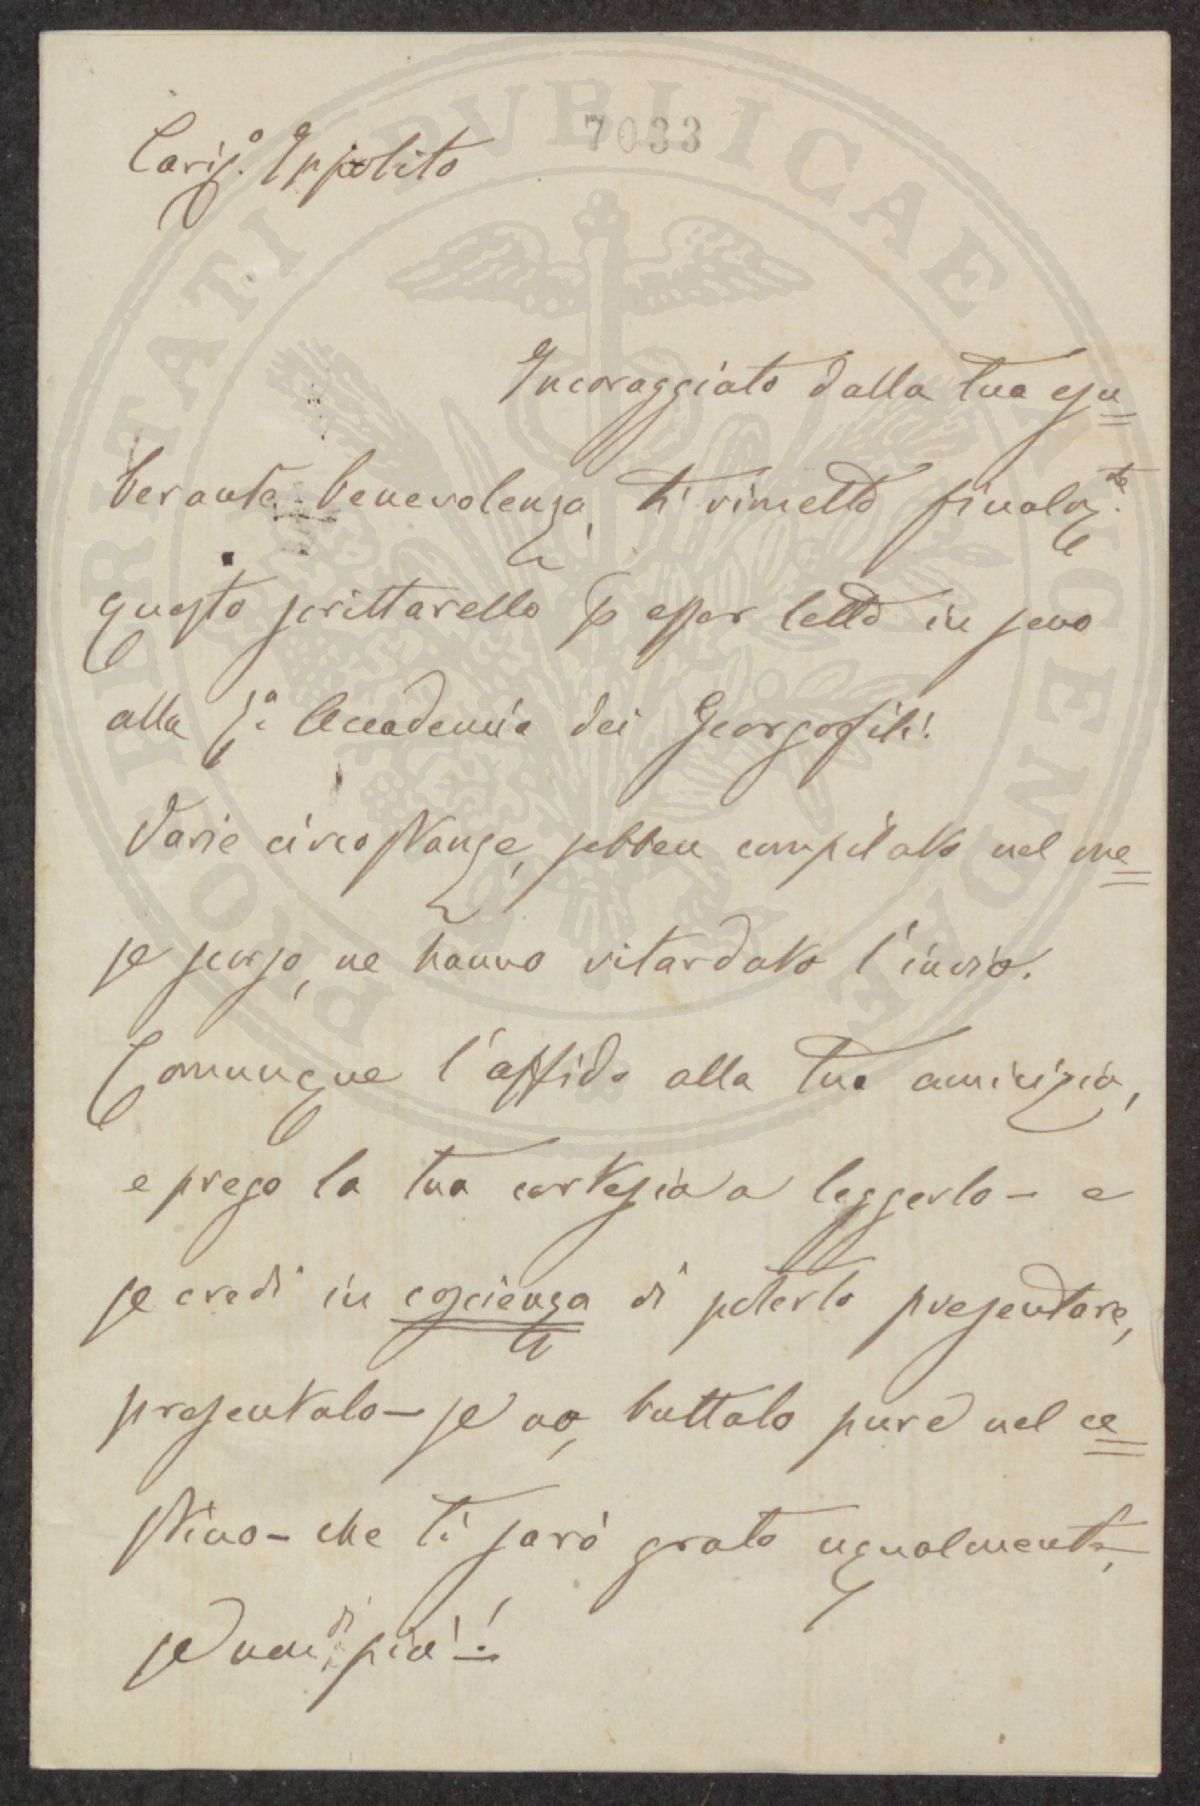 7033
Caris.º Ippolito
Incoraggiato dalla tua esu=
berante benevolenza, ti rimetto finalm.te
questo scrittarello p esser letto in seno
alla R.ª Accademia dei Georgofili.
Varie circostanze, sebben compilato nel me=
se scorso, ne hanno ritardato l'invio.
Comunque l'affido alla tua amicizia,
e prego la tua cortesia a leggerlo – e
se credi in coscienza di poterlo presentare,
presentalo – se no, buttalo pure nel ce=
stino – che ti sarò grato ugualmente,
se non di più!
PROSPERITATI PUBLICAE AUGENDAE